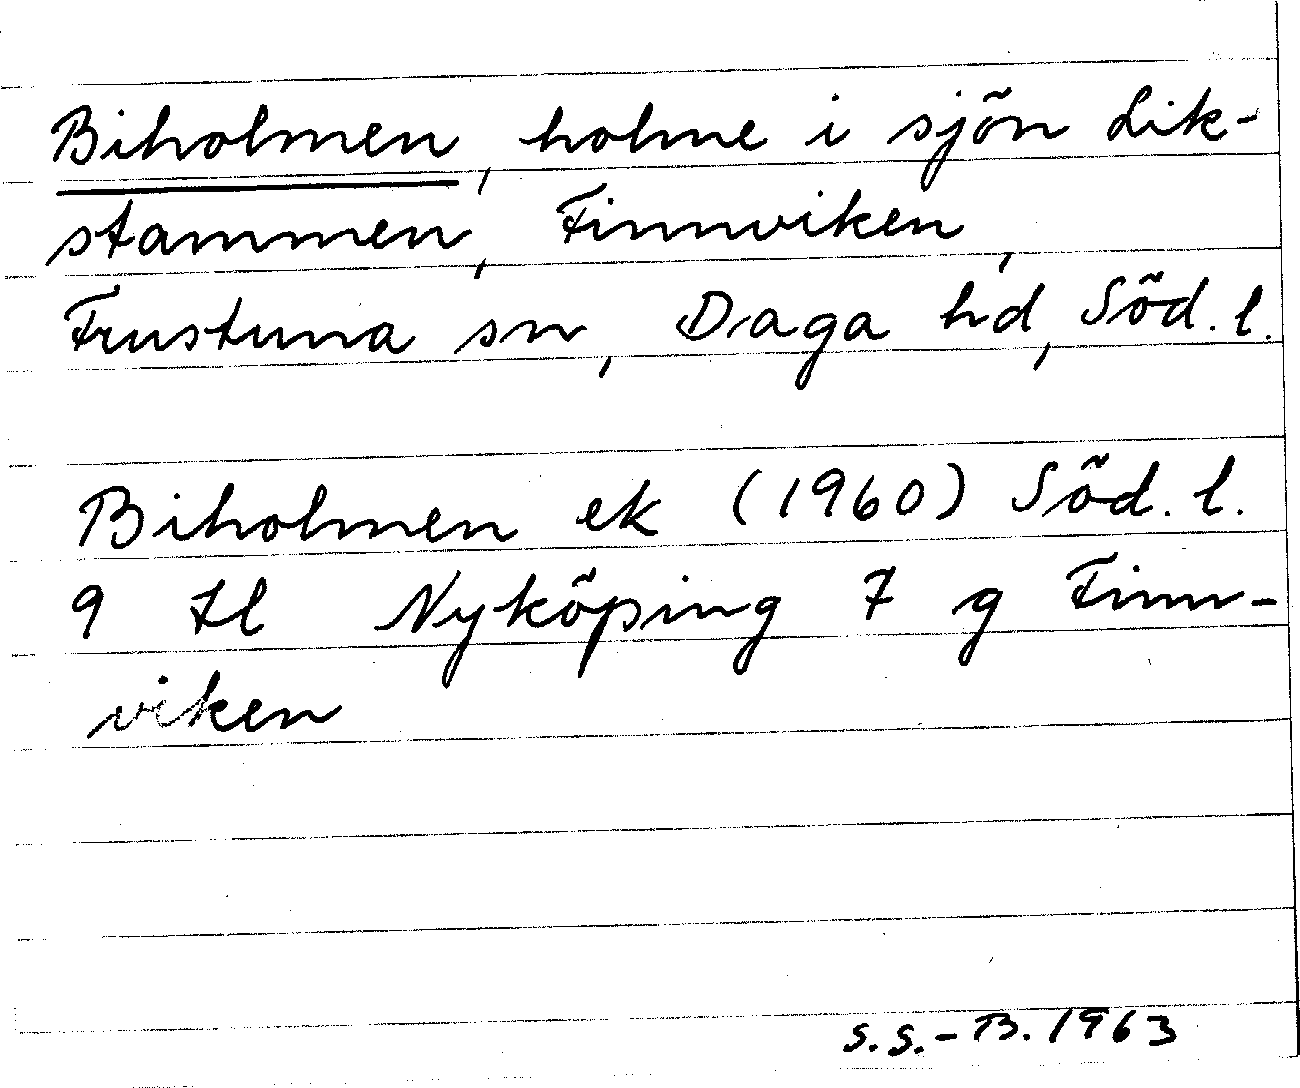 Biholmen, holme i sjön Lik-
stammen, Finnviken,
Frustuna sn, Daga hd, Söd. l.
Biholmen ek (1960) Söd. l.
9 Il Nyköping 7 g Finn-
viken
S. S. - B. 1963